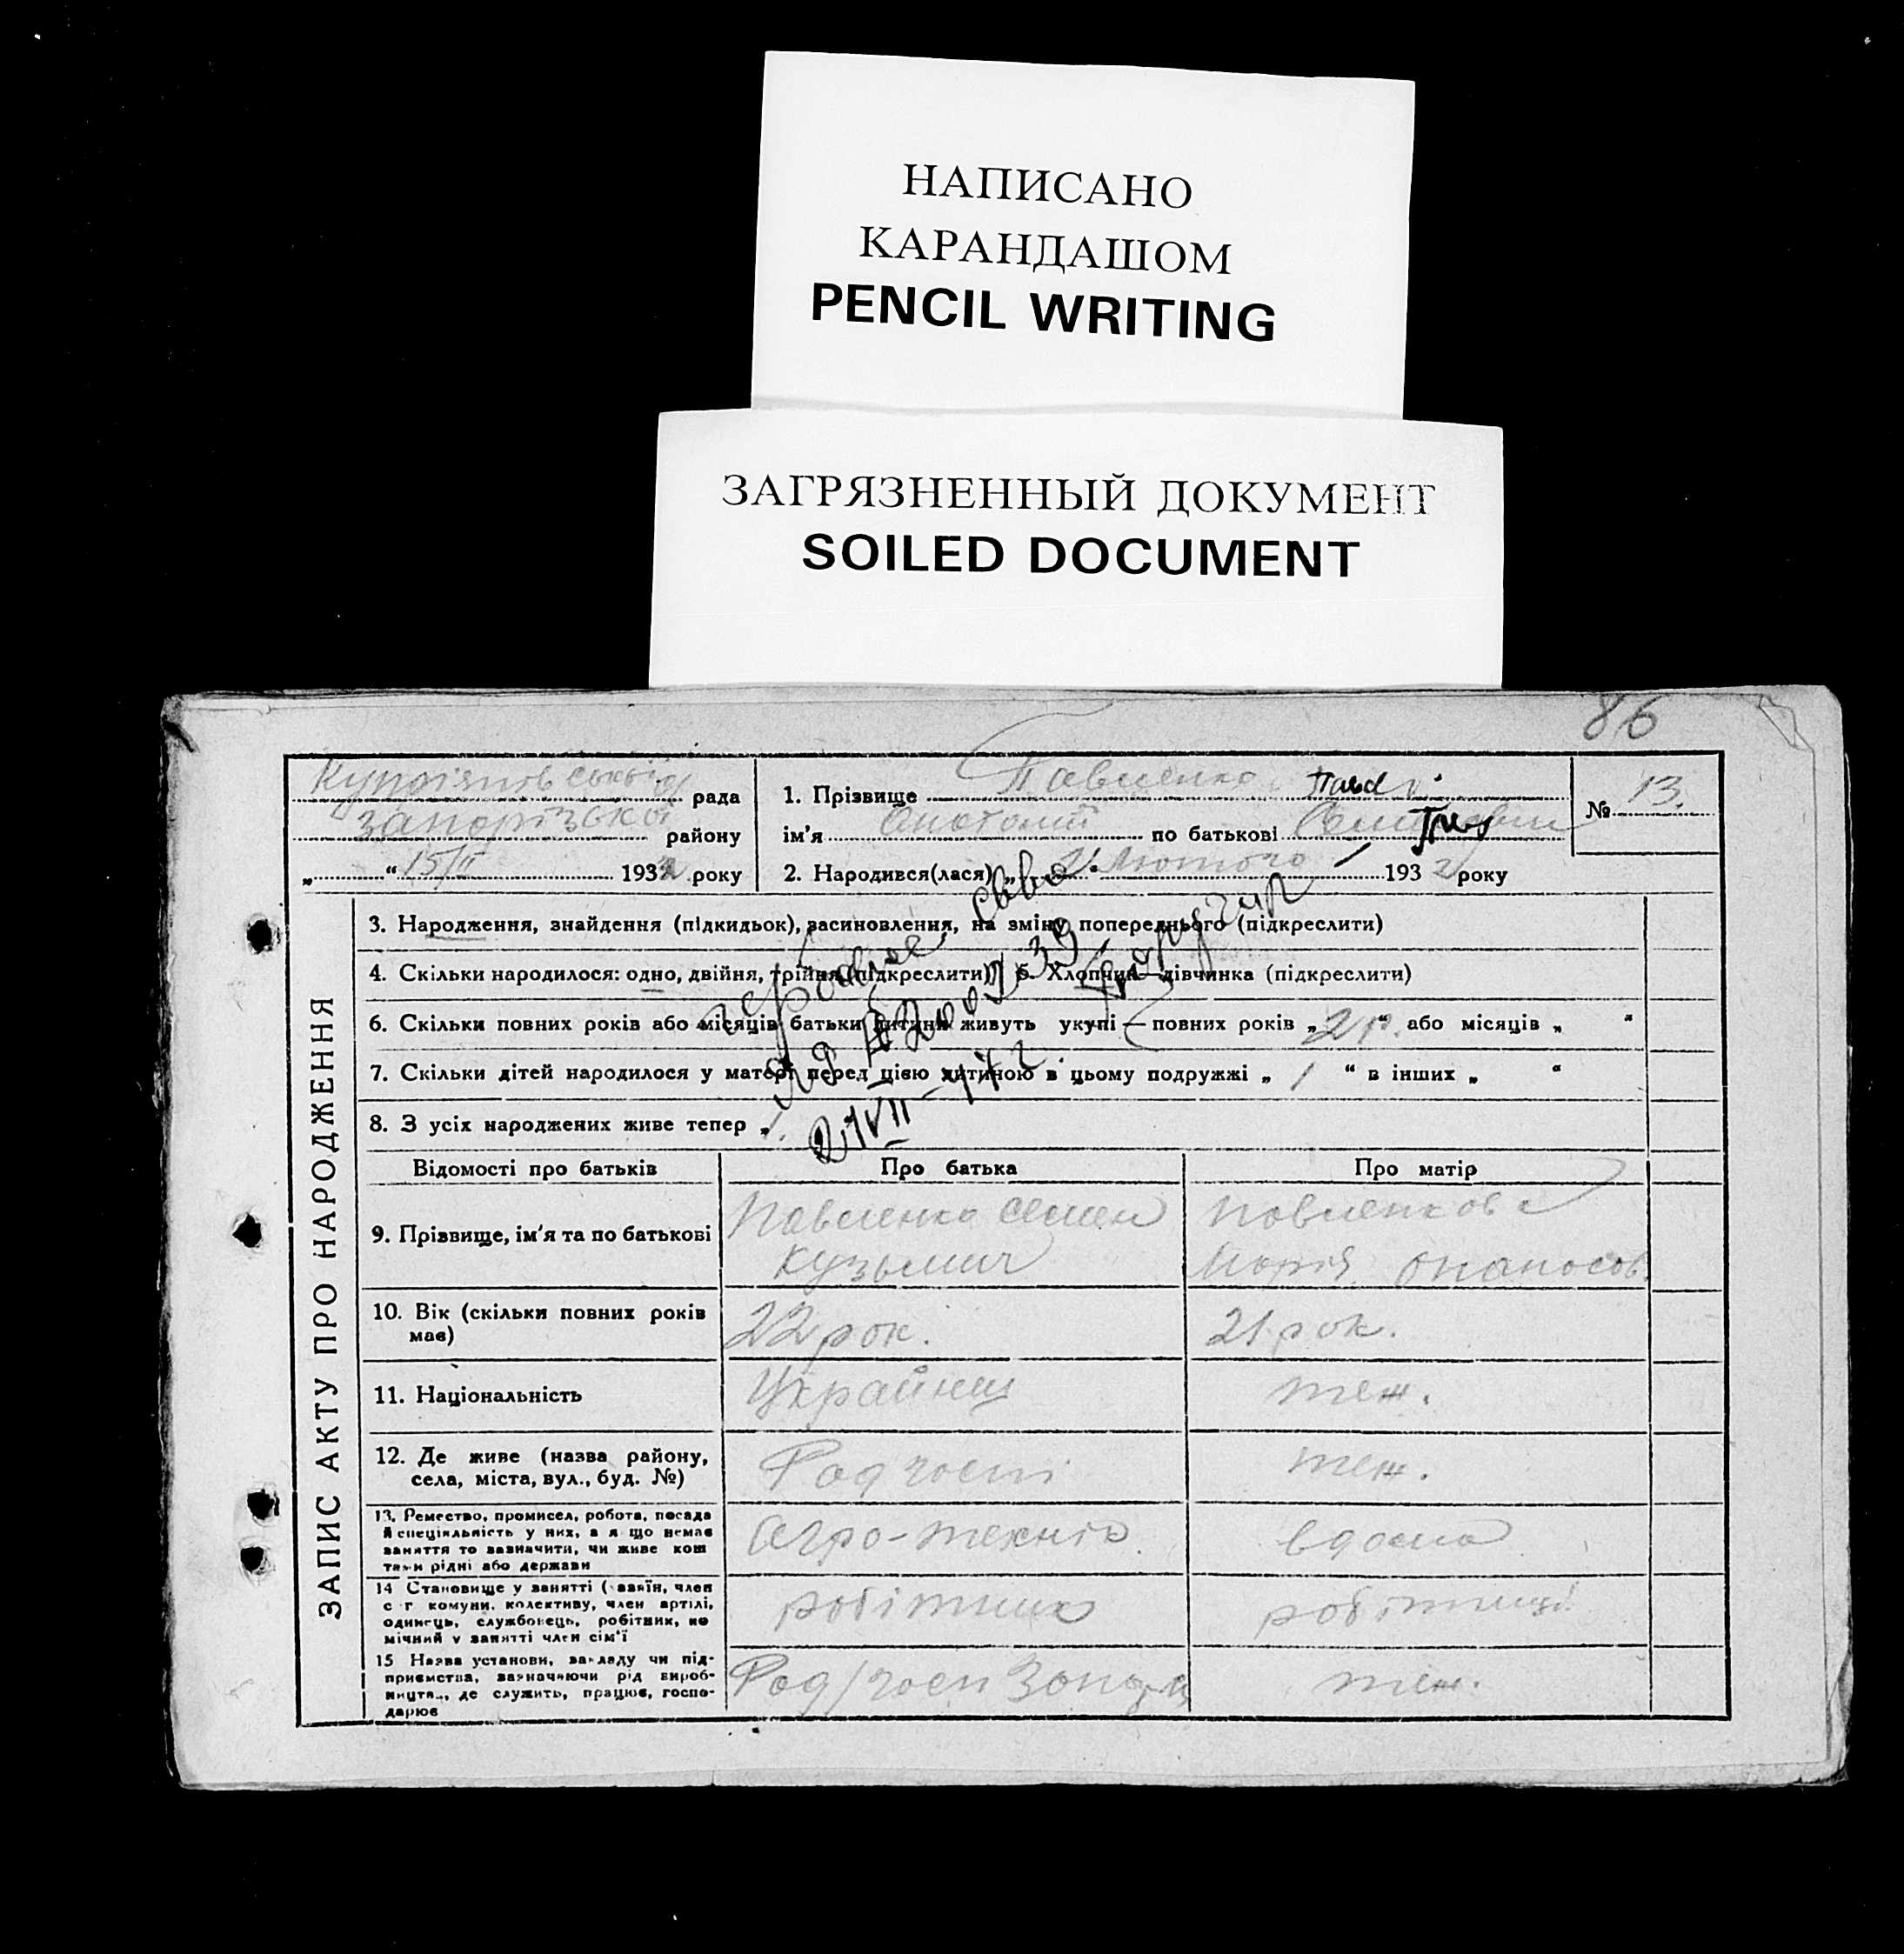 НАПИСАНО
КАРАНДАШОМ
PENCIL WRITING
ЗАГРЯЗНЕННЫЙ ДОКУМЕНТ
SOILED DOCUMENT
86
ЗАПИС АКТУ ПРО НАРОДЖЕННЯ
рада
району
„ “ 15/II 1932 року
1. Прізвище Павленко
ім'я Анатолий по батькові
2. Народився(лася) „ Лютого 1932 року
№ 13.
3. Народження, знайдення (підкидьок), засиновлення, на зміну попереднього (підкреслити)
4. Скільки народилося: одно, двійня, трійня (підкреслити) 5. Хлопчик—дівчинка (підкреслити)
6. Скільки повних років або місяців батьки дитини живуть укупі — повних років „ 2 р. “ або місяців „ “
7. Скільки дітей народилося у матері перед цією дитиною в цьому подружжі „ 1 “ в інших „ “
8. З усіх народжених живе тепер „ 1.
Відомості про батьків Про батька Про матір
9. Прізвище, ім'я та по батькові Павленко Семен Кузьмич Павленкова Марія Опанасов.
10. Вік (скільки повних років має) 22 рок. 21 рок.
11. Національність Украйнец теж.
12. Де живе (назва району, села, міста, вул., буд. №) Радгоспі теж.
13. Ремество, промисел, робота, посада й спеціяльність у них, а я що немає заняття то зазначити, чи живе кош тами рідні або держави Агро-технік вдома
14 Становище у занятті (хазяїн, член с г комуни, колективу, член артілі, одинець, службовець, робітник, по мічний у занятті член сім'ї робітник робітниці
15 Назва установи, закладу чи підприємства, зазначаючи рід виробництва, де служить, працює, господарює Рад/госп теж.